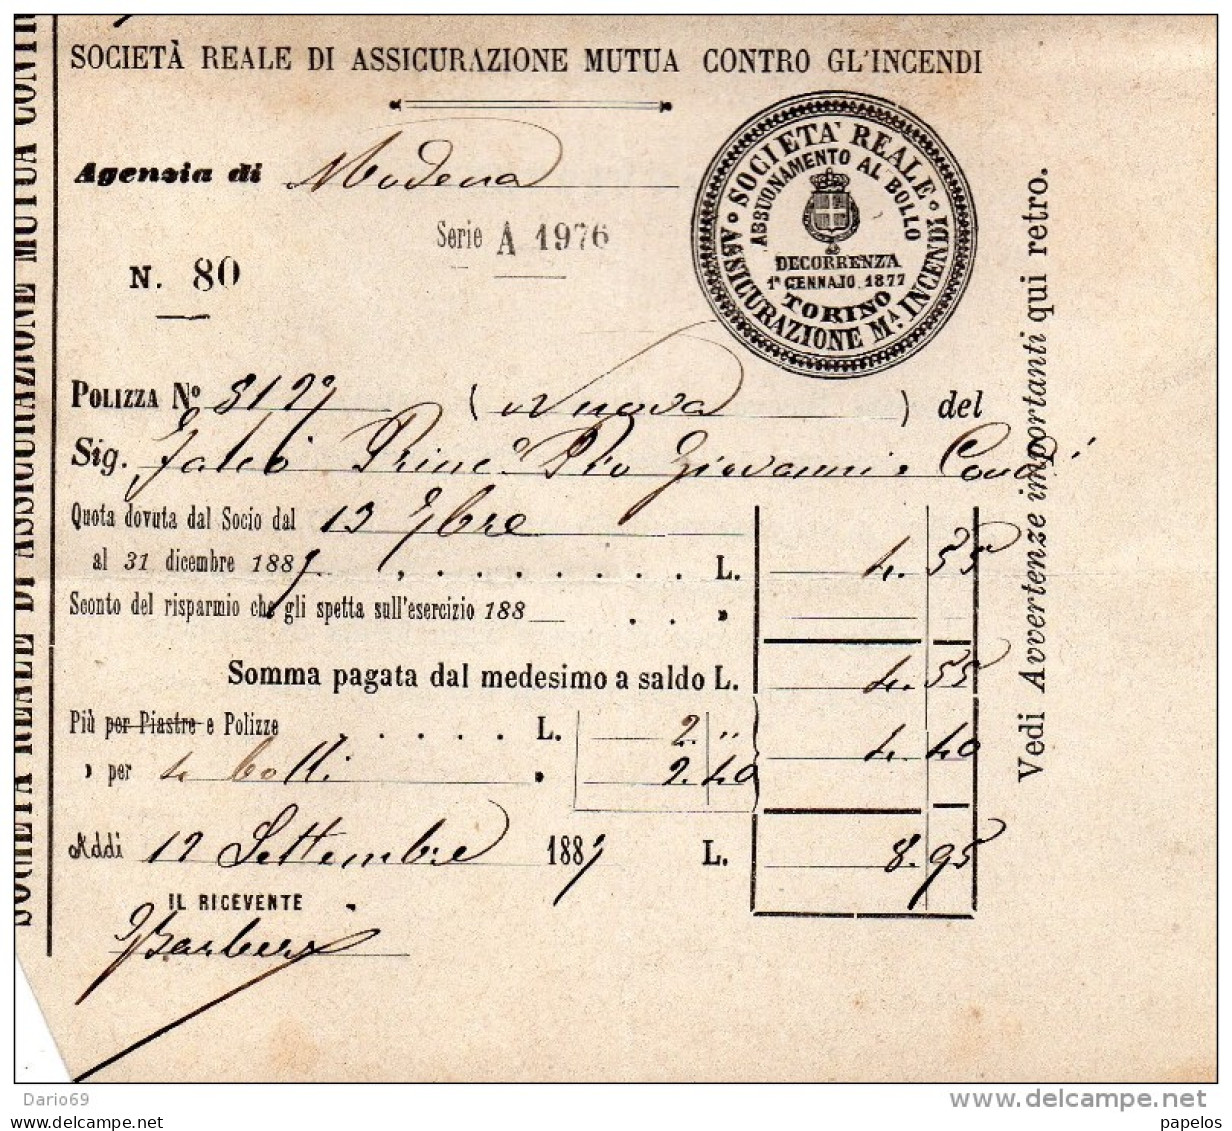 SOCIETÀ REALE DI ASSICURAZIONE MUTUA CONTR
SOCIETÀ REALE DI ASSICURAZIONE MUTUA CONTRO GL'INCENDI
Agenzia di Modena
SOCIETA' REALE
ASSICURAZIONE M.A INCENDI
ABBUONAMENTO AL BOLLO
DECORRENZA
1° GENNAJO 1877
TORINO
Serie A 1976
N. 80
POLIZZA N° 8127 ( Nuova ) del
Sig. Falcò Princ.e Pio Giovanni e
Quota dovuta dal Socio dal 13 7bre
al 31 dicembre 1887. . . . . . . . . L. 4. 55
Sconto del risparmio che gli spetta sull'esercizio 188 . . »
Somma pagata dal medesimo a saldo L. 4. 55
Più per Piastre e Polizze . . . . . L. 2. „ 4. 40
» per 4 bolli » 2. 40
Addì 12 Settembre 1887 L. 8. 95
IL RICEVENTE
Vedi Avvertenze importanti qui retro.
Dario69
www.delcampe.net
www.delcampe.net
papelos